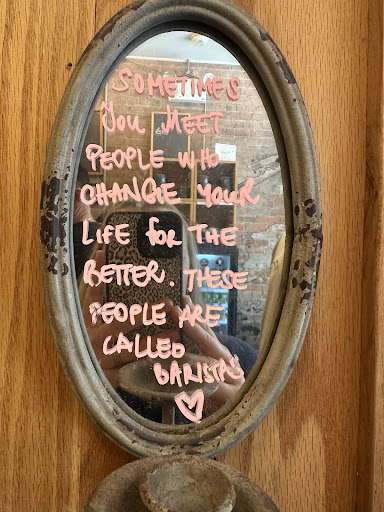 SOMETIMES
YOU MEET
PEOPLE WHO
CHANGE YOUR
LIFE FOR THE
BETTER. THESE
PEOPLE ARE
CALLED
BARISTAS